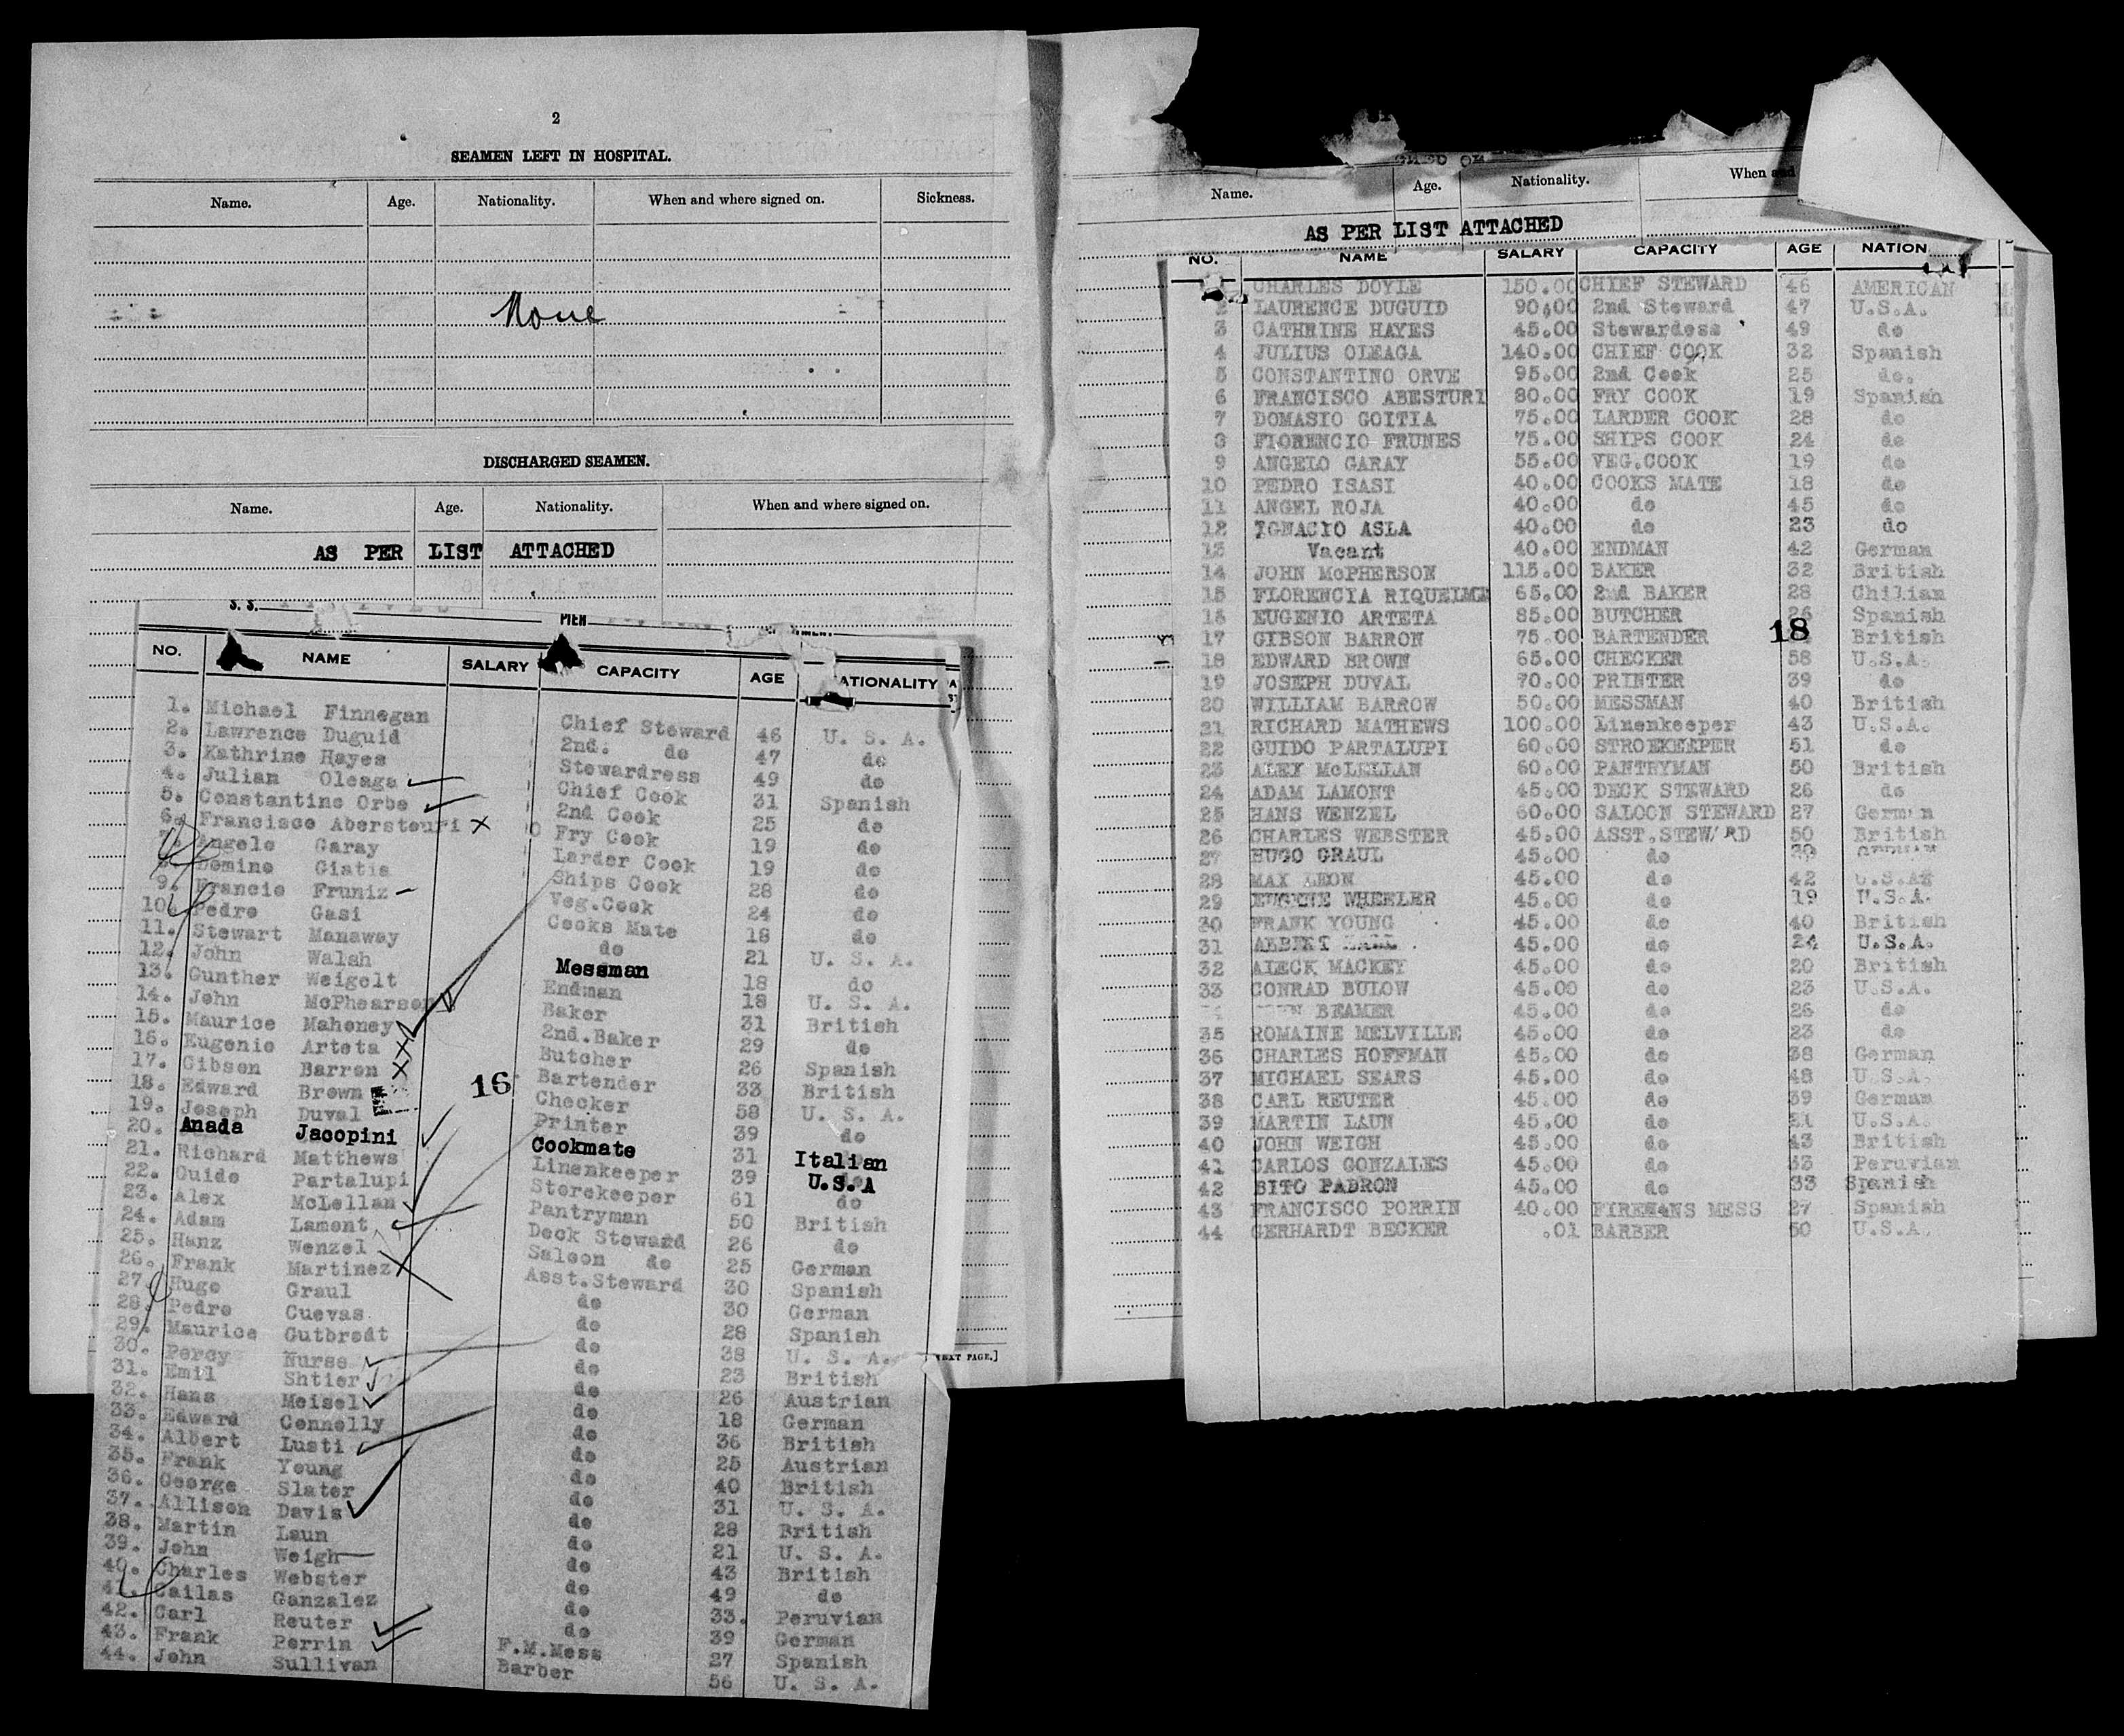 2
SEAMEN LEFT IN HOSPITAL.
Name. Age. Nationality. When and where signed on. Sickness.
None
DISCHARGED SEAMEN.
Name. Age. Nationality. When and where signed on.
AS PER LIST ATTACHED
S. S. PIER
NO. NAME SALARY CAPACITY AGE NATIONALITY
1. Michael Finnegan Chief Steward 46 U. S. A.
2. Lawrence Duguid 2nd. do 47 do
3. Kathrine Hayes Stewardress 49 do
4. Julian Oleaga Chief Cook 31 Spanish
5. Constantino Orbe 2nd Cook 25 do
6. Francisco Abersteuri Fry Cook 19 do
7. Angelo Garay Larder Cook 19 do
8. Domino Giatia Ships Cook 28 do
9. Francio Fruniz Veg.Cook 24 do
10. Pedro Gasi Cooks Mate 18 do
11. Stewart Manaway do 21 U. S. A.
12. John Walsh Messman 18 do
13. Gunther Weigelt Endman 18 U. S. A.
14. John McPhearson Baker 31 British
15. Maurice Mahoney 2nd.Baker 29 do
16. Eugenio Arteta Butcher 26 Spanish
17. Gibson Barron Bartender 33 British
18. Edward Brown Checker 58 U. S. A.
19. Joseph Duval Printer 39 do
16
20. Anada Jacopini Cookmate 31 Italian
21. Richard Matthews Linenkeeper 39 U.S.A
22. Guido Partalupi Storekeeper 61 do
23. Alex McLellan Pantryman 50 British
24. Adam Lamont Deck Steward 26 do
25. Hanz Wenzel Saloon do 25 German
26. Frank Martinez Asst.Steward 30 Spanish
27. Hugo Graul do 30 German
28. Pedro Cuevas do 28 Spanish
29. Maurice Gutbrodt do 38 U. S. A.
30. Percy Nurse do 23 British
31. Emil Shtier do 26 Austrian
32. Hans Meisel do 18 German
33. Edward Connolly do 36 British
34. Albert Lusti do 25 Austrian
35. Frank Young do 40 British
36. George Slater do 31 U. S. A.
37. Allison Davis do 28 British
38. Martin Laun do 21 U. S. A.
39. John Weigh do 43 British
40. Charles Webster do 49 do
41. Cailas Ganzalez do 33. Peruvian
42. Carl Reuter do 39 German
43. Frank Perrin F.M.Mess 27 Spanish
44. John Sullivan Barber 56 U. S. A.
PAGE.]
Name. Age. Nationality. When and
AS PER LIST ATTACHED
NO. NAME SALARY CAPACITY AGE NATION
CHARLES DOYLE 150.00 CHIEF STEWARD 46 AMERICAN
2 LAURENCE DUGUID 90.00 2nd Steward 47 U.S.A.
3 CATHRINE HAYES 45.00 Stewardess 49 do
4 JULIUS OLEAGA 140.00 CHIEF COOK 32 Spanish
5 CONSTANTINO ORVE 95.00 2nd Cook 25 do.
6 FRANCISCO ABESTURI 80.00 FRY COOK 19 Spanish
7 DOMASIO GOITIA 75.00 LARDER COOK 28 do
8 FIORENCIO FRUNES 75.00 SHIPS COOK 24 do
9 ANGELO GARAY 55.00 VEG.COOK 19 do
10 PEDRO ISASI 40.00 COOKS MATE 18 do
11 ANGEL ROJA 40.00 do 45 do
12 IGNACIO ASLA 40.00 do 23 do
13 Vacant 40.00 ENDMAN 42 German
14 JOHN McPHERSON 115.00 BAKER 32 British
15 FLORENCIA RIQUEIME 65.00 2nd BAKER 28 Chilian
16 EUGENIO ARTETA 85.00 BUTCHER 26 Spanish
17 GIBSON BARRON 75.00 BARTENDER British
18
18 EDWARD BROWN 65.00 CHECKER 58 U.S.A.
19 JOSEPH DUVAL 70.00 PRINTER 39 do
20 WILLIAM BARROW 50.00 MESSMAN 40 British
21 RICHARD MATHEWS 100.00 Linenkeeper 43 U.S.A.
22 GUIDO PARTALUPI 60.00 STROEKEEPER 51 do
23 ALEX McLELLAN 60.00 PANTRYMAN 50 British
24 ADAM LAMONT 45.00 DECK STEWARD 26 do
25 HANS WENZEL 60.00 SALOON STEWARD 27 German
26 CHARLES WEBSTER 45.00 ASST.STEWARD 50 British
27 HUGO GRAUL 45.00 do 30 GERMAN
28 MAX LEON 45.00 do 42 U.S.A
29 EUGENE WHEELER 45.00 do 19 U.S.A.
30 FRANK YOUNG 45.00 do 40 British
31 ALBERT 45.00 do 24 U.S.A.
32 ALECK MACKEY 45.00 do 20 British
33 CONRAD BULOW 45.00 do 23 U.S.A.
BEAMER 45.00 do 26 do
35 ROMAINE MELVILLE 45.00 do 23 do
36 CHARLES HOFFMAN 45.00 do 38 German
37 MICHAEL SEARS 45.00 do 48 U.S.A.
38 CARL REUTER 45.00 do 39 German
39 MARTIN LAUN 45.00 do 21 U.S.A.
40 JOHN WEIGH 45.00 do 43 British
41 CARLOS GONZALES 45.00 do 33 Peruvian
42 BITO PADRON 45.00 do 33 Spanish
43 FRANCISCO PORRIN 40.00 FIREMANS MESS 27 Spanish
44 GERHARDT BECKER .01 BARBER 50 U.S.A.